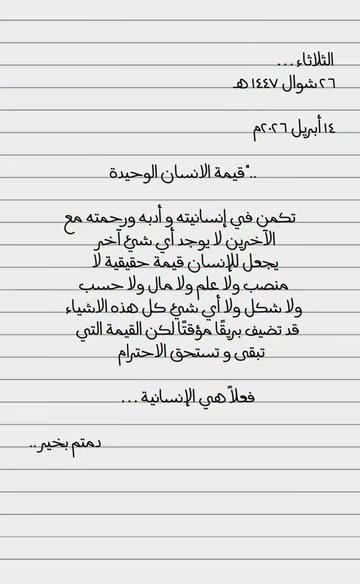 الثلاثاء...
٢٦ شوال ١٤٤٧ هـ
١٤ أبريل ٢٠٢٦م
.."قيمة الانسان الوحيدة
تكمن في إنسانيته و أدبه ورحمته مع
الآخرين لا يوجد أي شئ آخر
يجعل للإنسان قيمة حقيقية لا
منصب ولا علم ولا مال ولا حسب
ولا شكل ولا أي شئ كل هذه الاشياء
قد تضيف بريقًا مؤقتًا لكن القيمة التي
تبقى و تستحق الاحترام
فعلاً هي الإنسانية ...
دمتم بخير..